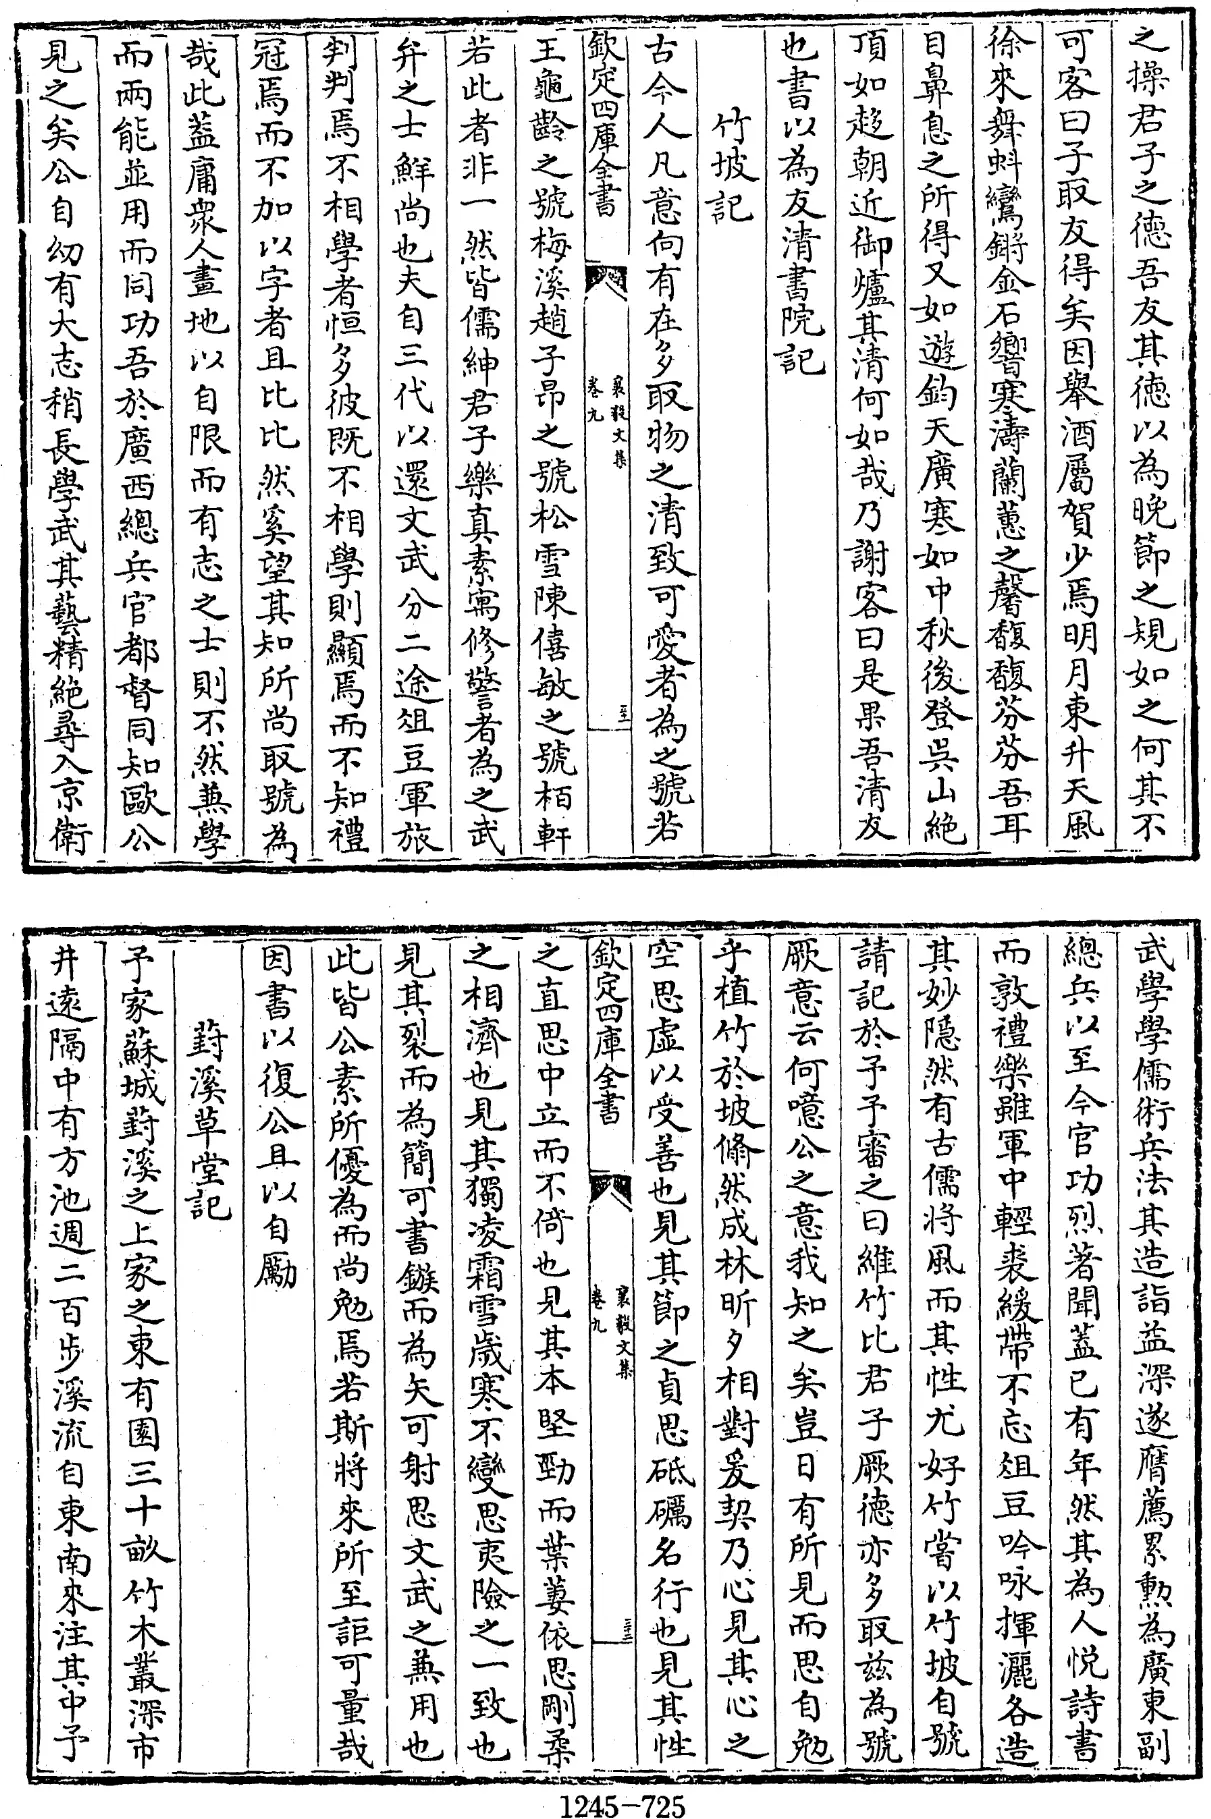 之操君子之德吾友其德以為晚節之規如之何其不
可客曰子取友得矣因舉酒屬賀少焉明月東升天風
徐來舞蚪鸞鏘金石響寒濤蘭蕙之馨馥馥芬芬吾耳
目鼻息之所得又如遊鈞天廣寒如中秋後登吳山絶
頂如趍朝近御爐其清何如哉乃謝客曰是果吾清友
也書以為友清書院記
竹坡記
古今人凡意向有在多取物之清致可愛者為之號若
欽定四庫全書
襄毅文集
卷九
王龜齡之號梅溪趙子昂之號松雪陳僖敏之號栢軒
若此者非一然皆儒紳君子樂真素寓修警者為之武
弁之士鮮尚也夫自三代以還文武分二途俎豆軍旅
判判焉不相學者恒多彼既不相學則顯焉而不知禮
冠焉而不加以字者且比比然奚望其知所尚取號為
哉此蓋庸衆人畫地以自限而有志之士則不然兼學
而兩能並用而同功吾於廣西總兵官都督同知歐公
見之矣公自幼有大志稍長學武其藝精絶尋入京衛
武學學儒術兵法其造詣益深遂膺薦累勲為廣東副
總兵以至今官功烈著聞蓋已有年然其為人悦詩書
而敦禮樂雖軍中輕裘緩帶不忘俎豆吟咏揮灑各造
其妙隱然有古儒將風而其性尤好竹嘗以竹坡自號
請記於予予審之曰維竹比君子厥德亦多取兹為號
厥意云何噫公之意我知之矣豈日有所見而思自勉
乎植竹於坡翛然成林昕夕相對爰契乃心見其心之
空思虛以受善也見其節之貞思砥礪名行也見其性
欽定四庫全書
襄毅文集
卷九
之直思中立而不倚也見其本堅勁而葉萋依思剛柔
之相濟也見其獨凌霜雪歲寒不變思夷險之一致也
見其裂而為簡可書鏃而為矢可射思文武之兼用也
此皆公素所優為而尚勉焉若斯將來所至詎可量哉
因書以復公且以自勵
葑溪草堂記
予家蘇城葑溪之上家之東有園三十畝竹木叢深市
井遠隔中有方池週二百步溪流自東南來注其中予
1245-725